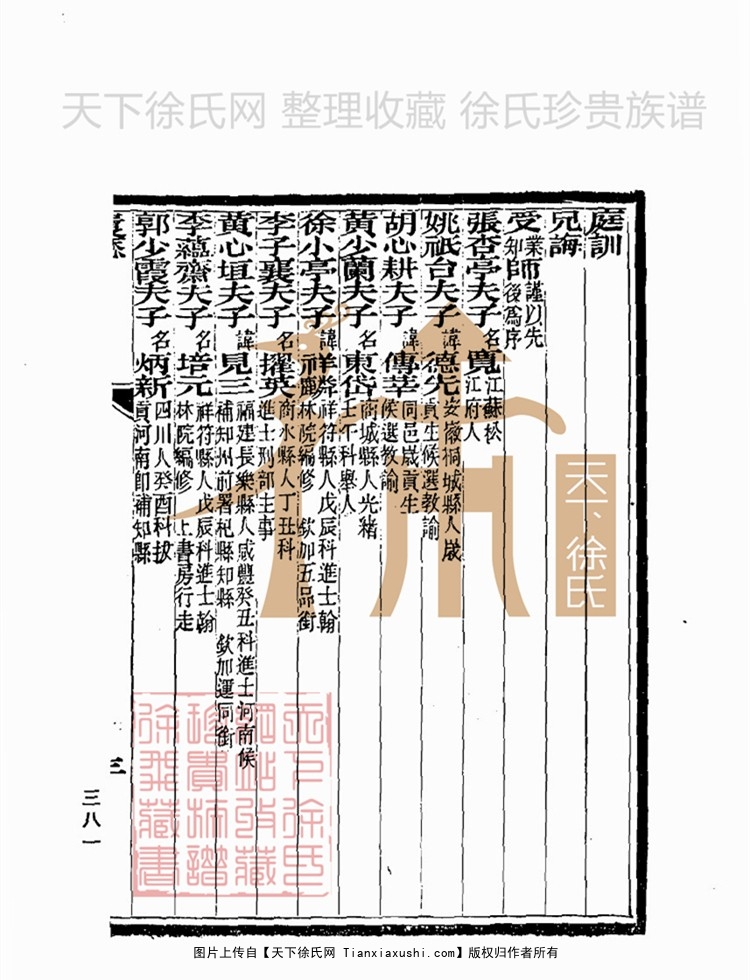 天下徐氏网 整理收藏 徐氏珍贵族谱
庭訓
兄誨
受業師謹以先
知後爲序
張杏亭夫子名寬江蘇松
江府人
姚祇台夫子諱德先安徽桐城縣人歲
貢生候選教諭
胡心耕夫子諱傳莘同邑歲貢生
候選教諭
黃少蘭夫子名東岱商城縣人光緒
壬午科舉人
徐小亭夫子諱祥麟祥符縣人戊辰科進士翰
林院編修 欽加五品銜
李子襄夫子名擢英商水縣人丁丑科
進士刑部主事
黃心垣夫子諱見三福建長樂縣人咸豐癸丑科進士河南候
補知州前署杞縣知縣 欽加運同銜
李蘊齋夫子名培元祥符縣人戊辰科進士翰
林院編修上書房行走
郭少霞夫子名炳新四川人癸酉科拔
貢河南即補知縣
三
三八一
天下徐氏
天下徐氏
網站收藏
珍貴族譜
徐氏藏書
图片上传自【天下徐氏网 Tianxiaxushi.com】版权归作者所有